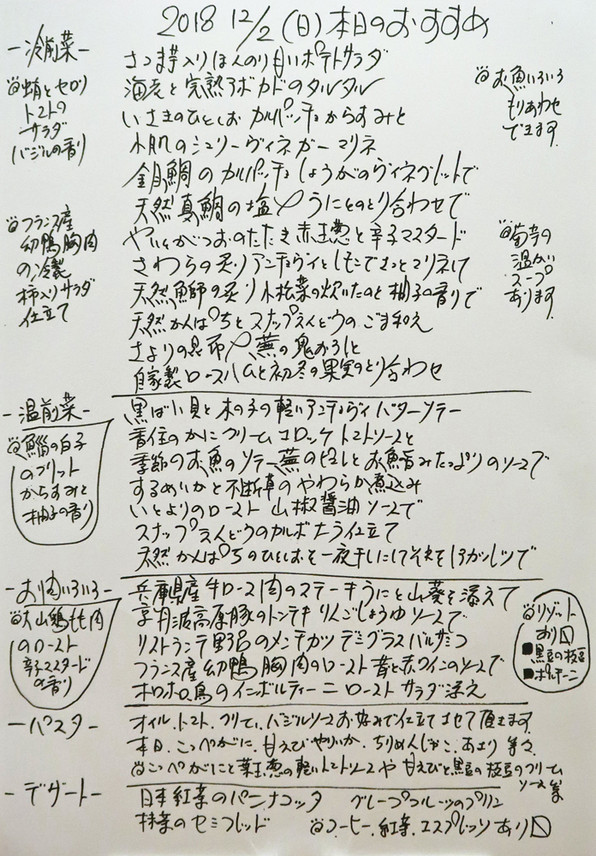 2018 12/2 (日) 本日のおすすめ
-冷前菜-
蛸とセロリ
トマトの
サラダ
バジルの香り
フランス産
幼鴨胸肉
の冷製
柿入りサラダ
仕立て
さつま芋入りほんのり甘いポテトサラダ
海老と完熟アボカドのタルタル
いさきのひとしお カルパッチョ からすみと
小肌のシェリーヴィネガーマリネ
金目鯛のカルパッチョ しょうがのヴィネグレットで
天然真鯛の塩〆 うにとのとり合わせで
やいとがつおのたたき 赤玉葱と辛子マスタード
さわらの炙り アンチョヴィとしそでさっとマリネして
天然鰤の炙り 小松菜の炊いたのと柚子の香りで
天然かんぱちとスナップえんどうのごま和え
さよりの昆布〆 蕪の鬼おろしと
自家製ロースハムと初冬の果実のとり合わせ
お魚いろいろ
もりあわせ
できます
菊芋の
温かい
スープ
あります
-温前菜-
鯔の白子
のフリット
からすみと
柚子の香り
黒ばい貝と木の子の軽いアンチョヴィバターソテー
香住のかにクリームコロッケ トマトソースと
季節のお魚のソテー 蕪のピュレとお魚旨みたっぷりのソースで
するめいかと不断草のやわらか煮込み
いとよりのロースト 山椒醬油ソースで
スナップえんどうのカルボナーラ仕立て
天然かんぱちのひとしおを一夜干しにしてそれを
-お肉いろいろ-
大山鶏もも肉
のロースト
辛子マスタード
の香り
兵庫県産牛ロース肉のステーキ うにと山葵を添えて
京丹波高原豚のトンテキ りんごしょうゆソースで
リストランテ野呂のメンチカツ デミグラスバルサミコ
フランス産幼鴨胸肉のロースト 昔と赤ワインのソースで
ホロホロ鳥のインボルティーニ ロースト サラダ添え
リゾット
あり〼
■黒豆の枝豆
■ポルチーニ
-パスタ-
オイル、トマト、クリーム、バジルソースお好みで仕立てさせて頂きます。
本日、こっぺがに、甘えび、やりいか、ちりめんじゃこ、あさり 等々
こっぺがにと葉玉葱の軽いトマトソースや 甘えびと黒豆の枝豆のクリーム
ソース 等
-デザート-
日本紅茶のパンナコッタ グレープフルーツのプリン
抹茶のセミフレッド コーヒー、紅茶、エスプレッソあり〼